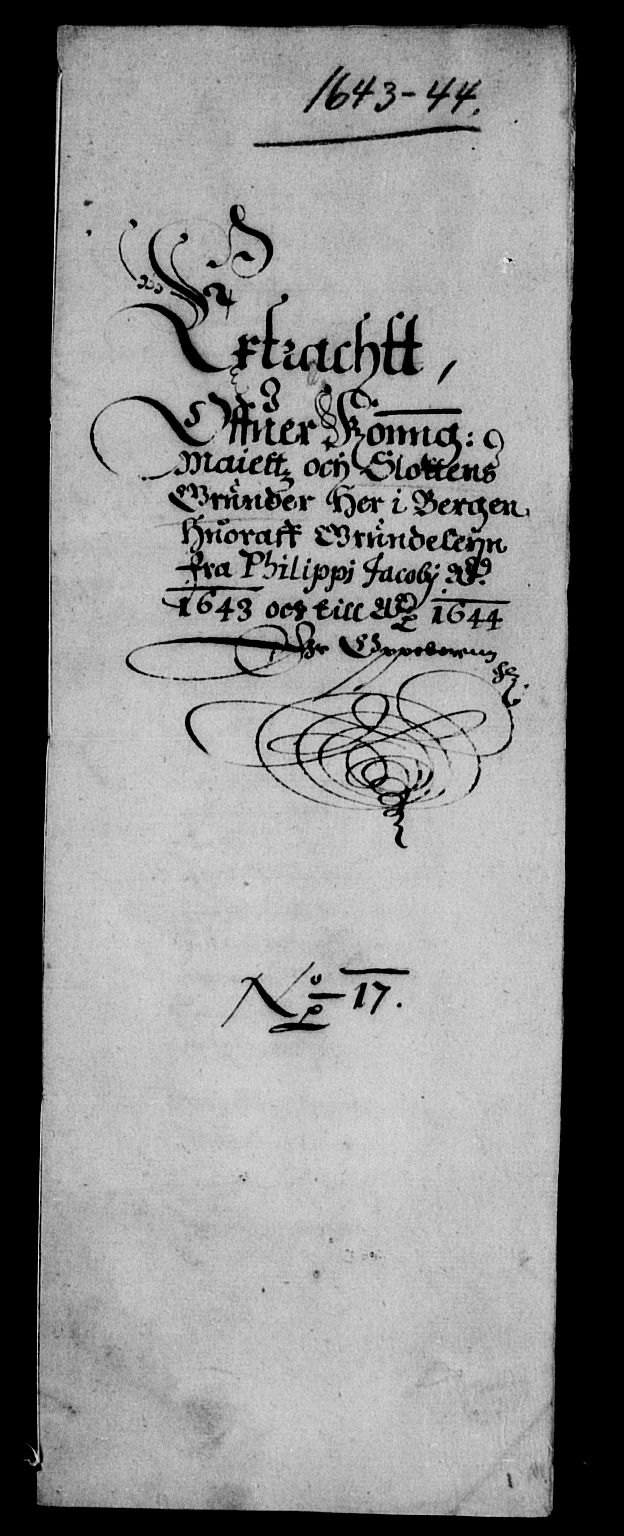 1643-44.
Extrachtt,
Offuer Konng:
Maiettz och Slottens
Grunder Her i Bergen
Huoraff Grundeleyn
fra Philippi Jacobj Ao
1643 och till Ao 1644
Er Oppeboren
No 17.